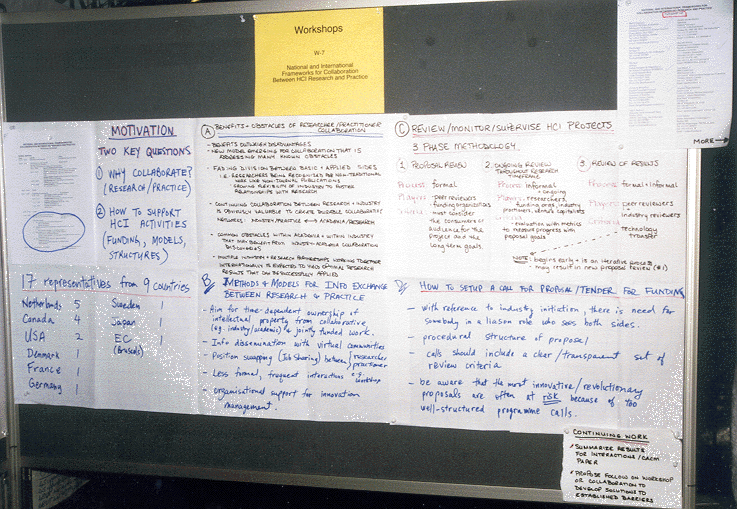 Workshops
W-7
National and International
Frameworks for Collaboration
Between HCI Research and Practice
MORE
MOTIVATION
TWO KEY QUESTIONS
① WHY COLLABORATE?
(RESEARCH/PRACTICE)
② HOW TO SUPPORT
HCI ACTIVITIES
(FUNDING, MODELS,
STRUCTURES)
17 representatives from 9 countries
Netherlands 5 Sweden 1
Canada 4 Japan 1
USA 2 EC 1
(Brussels)
Denmark 1
France 1
Germany 1
A BENEFITS + OBSTACLES OF RESEARCHER/PRACTITIONER
COLLABORATION
- BENEFITS OUTWEIGH DISADVANTAGES
- NEW MODEL EMERGING FOR COLLABORATION THAT IS
ADDRESSING MANY KNOWN OBSTACLES
- FADING DIVISION BETWEEN BASIC + APPLIED SIDES
- i.e. RESEARCHERS BEING RECOGNIZED FOR NON-TRADITIONAL
WORK LIKE NON-JOURNAL PUBLICATIONS
- GROWING FLEXIBILITY OF INDUSTRY TO FOSTER
RELATIONSHIPS WITH RESEARCH
- CONTINUING COLLABORATION BETWEEN RESEARCH + INDUSTRY
IS OBVIOUSLY VALUABLE TO CREATE DURABLE COLLABORATIVE
NETWORKS. INDUSTRY/PRACTICE ↔ ACADEMIA/RESEARCH
- COMMON OBSTACLES WITHIN ACADEMIA + WITHIN INDUSTRY
THAT MAY BENEFIT FROM INDUSTRY-ACADEMIA COLLABORATION
DISCUSSIONS
- MULTIPLE INDUSTRY + RESEARCH PARTNERSHIPS WORKING TOGETHER
INTERNATIONALLY IS EXPECTED TO YIELD OPTIMAL RESEARCH
RESULTS THAT CAN BE SUCCESSFULLY APPLIED
B METHODS & MODELS FOR INFO EXCHANGE
BETWEEN RESEARCH & PRACTICE
- Aim for time-dependent ownership of
intellectual property from collaborative
(eg. industry/academic) & jointly funded work.
- Info dissemination with virtual communities
- Position swapping (Job Sharing) between researcher/
practitioner
- Less formal, frequent interactions e.g.
workshop
- organisational support for innovation
management.
C REVIEW/MONITOR/SUPERVISE HCI PROJECTS
3 PHASE METHODOLOGY
1. PROPOSAL REVIEW
Process: formal
Players: - peer reviewers
- funding organisations
must consider
the consumers or
audience for the
project and the
long term goals.
2. ONGOING REVIEW
THROUGHOUT RESEARCH
TIMEFRAME
Process: informal
+ ongoing
Players: researchers,
funding orgs, industry
practitioners, venture capitalists
Criteria:
- evaluation with metrics
to measure progress with
proposal goals
3. REVIEW OF RESULTS
Process: formal + informal
Players: peer reviewers
industry reviewers
Criteria:
technology
transfer
NOTE: begins early + is an iterative process
may result in new proposal review (#1)
D HOW TO SETUP A CALL FOR PROPOSAL/TENDER FOR FUNDING
- with reference to industry initiation, there is need for
somebody in a liason role who sees both sides.
- procedural structure of proposal
- calls should include a clear/transparent set of
review criteria
- be aware that the most innovative/revolutionary
proposals are often at risk because of too
well-structured programme calls.
CONTINUING WORK
SUMMARIZE RESULTS
FOR INTERACTIONS/CACM
PAPER
PROPOSE FOLLOW ON WORKSHOP
OR COLLABORATION TO
DEVELOP SOLUTIONS TO
ESTABLISHED BARRIERS